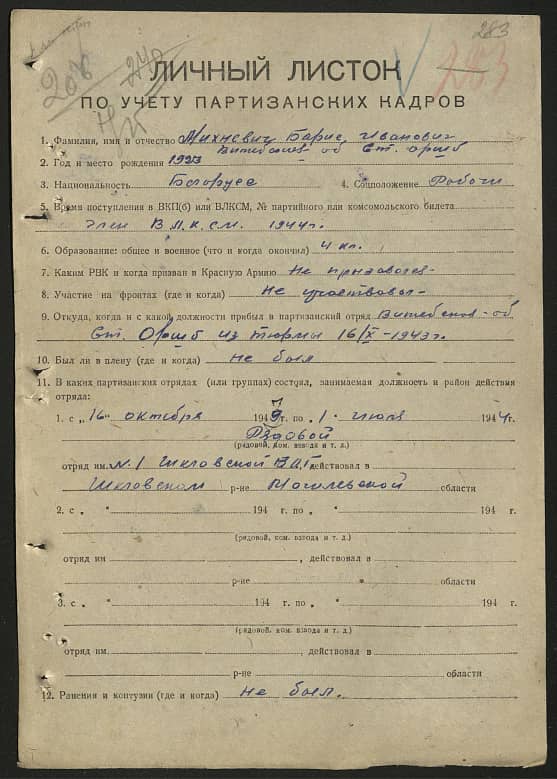 283
208
240
283
ЛИЧНЫЙ ЛИСТОК
ПО УЧЕТУ ПАРТИЗАНСКИХ КАДРОВ
1. Фамилия, имя и отчество Михневич Барис Иванович
2. Год и место рождения 1923 Витебская об Ст. Оршб
3. Национальность Белорусс 4. Соцположение Рабочи
5. Время поступления в ВКП(б) или ВЛКСМ, № партийного или комсомольского билета
Член В.Л.К.С.М. 1944г.
6. Образование: общее и военное (что и когда окончил) 4 кл.
7. Каким РВК и когда призван в Красную Армию Не призовался
8. Участие на фронтах (где и когда) Не участвовал
9. Откуда, когда и с какой должности прибыл в партизанский отряд Витебская об.
Ст. Оршб из тюрмы 16/X-1943г.
10. Был ли в плену (где и когда) не был
11. В каких партизанских отрядах (или группах) состоял, занимаемая должность и район действия
отряда:
1. с „16" октября 1943г. по „1" июля 1944г.
Рядовой
(рядовой, ком. взвода и т. д.)
отряд им. №1 Шкловской В.О.Г. действовал в
Шкловском р-не Могилевской области
2. с „ " 194 г. по „ " 194 г.
(рядовой, ком. взвода и т. д.)
отряд им , действовал в
р-не области
3. с „ " 194 г. по „ " 194 г.
(рядовой, ком. взвода и т. д.)
отряд им. , действовал в
р-не области
12. Ранения и контузии (где и когда) не был.